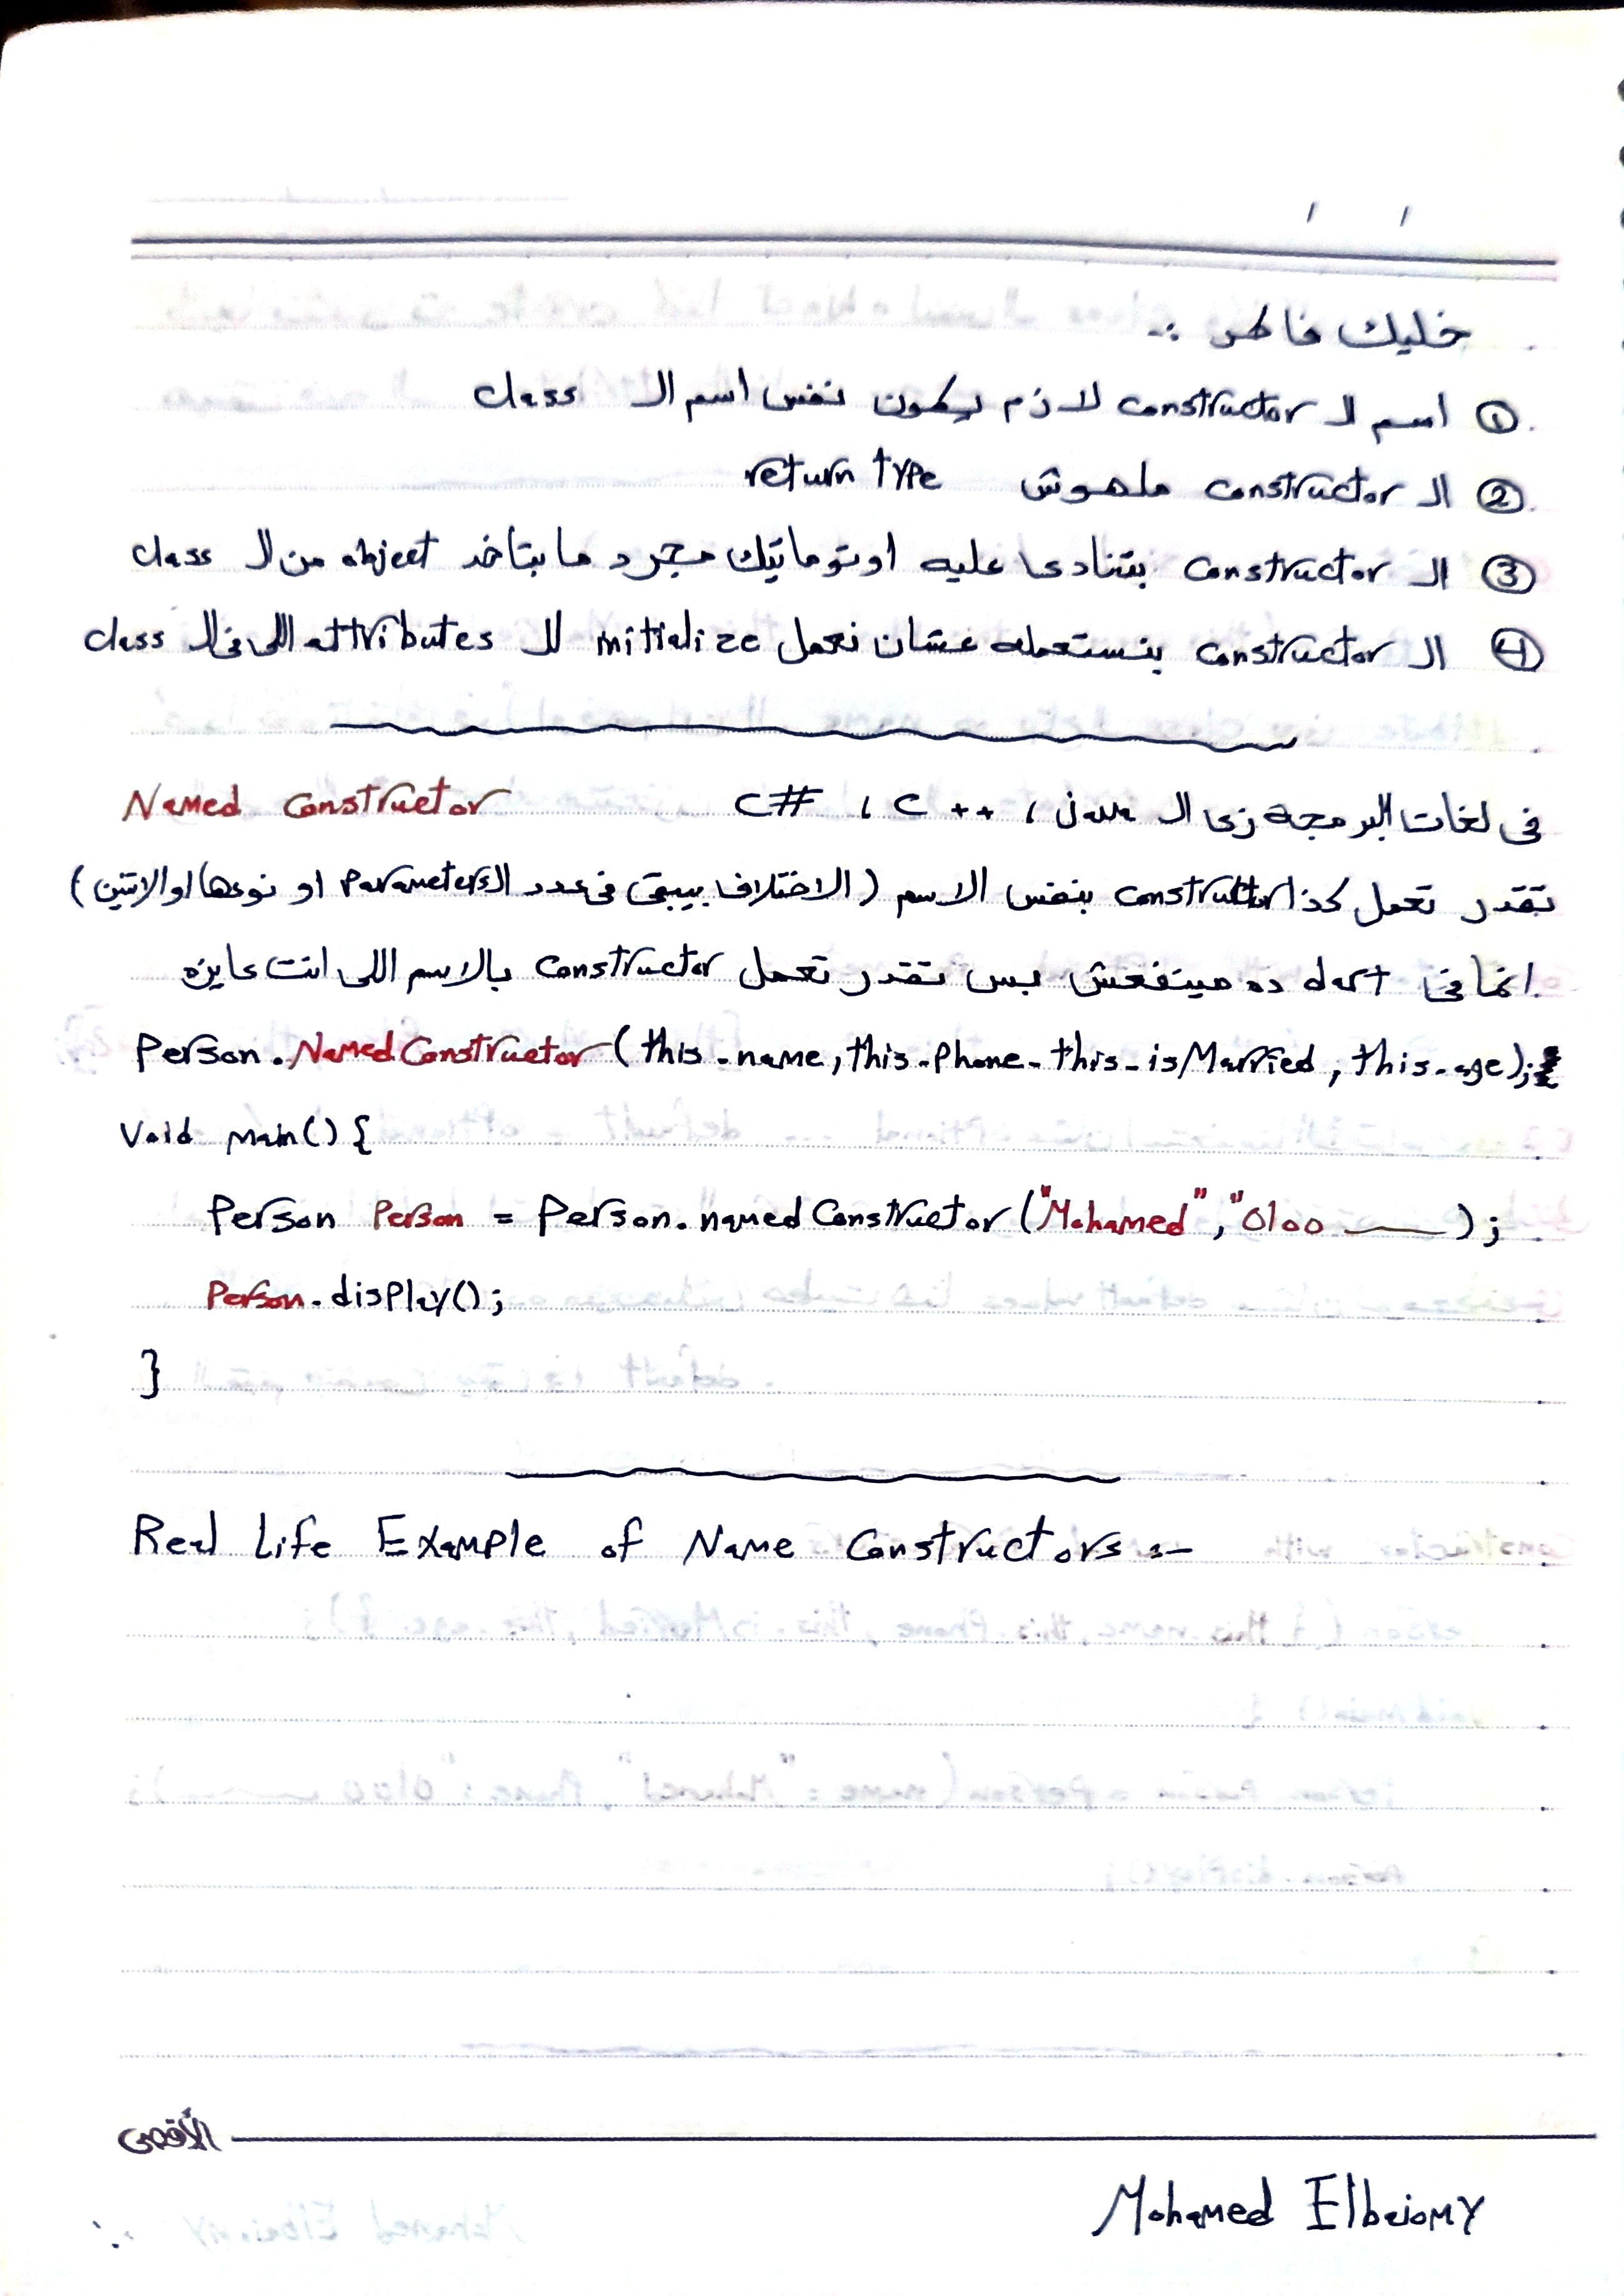 خليك فاكر :-
① اسم الـ constructor لازم يكون نفس اسم الـ class
② الـ constructor ملهوش return type
③ الـ constructor بتنادى عليه اوتوماتيك مجرد ما بتاخد object من الـ class
④ الـ constructor بنستعمله عشان نعمل initialize للـ attributes اللى فى الـ class
فى لغات البرمجه زى الـ java ، C++ ، C# Named Constructor
تقدر تعمل كذا constructor بنفس الاسم (الاختلاف بيبقى فى عدد الـ parameters او نوعها او الاتنين)
انما فى dart ده مينفعش بس تقدر تعمل constructor بالاسم اللى انت عايزه
Person.NamedConstructor(this.name, this.Phone-this-isMarried, this.age);
Void main() {
Person Person = Person.namedConstructor("Mohamed", "0100 ——);
Person.display();
}
Real Life Example of Name Constructors :-
الأقصى
Mohamed Elbaiomy